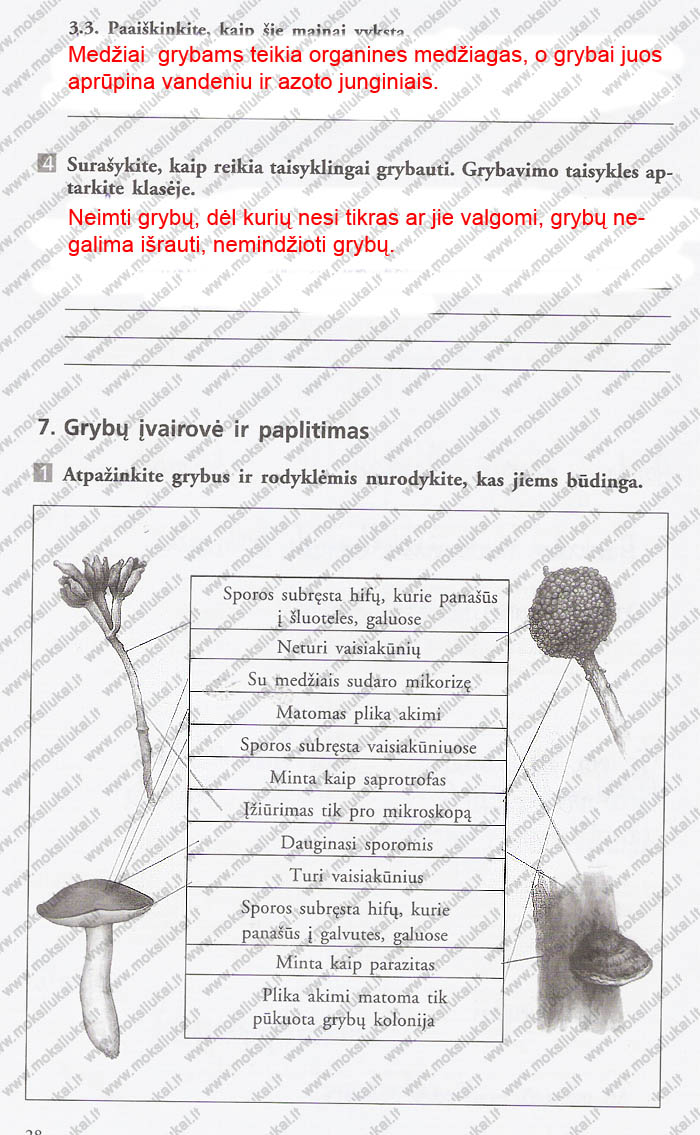 3.3. Paaiškinkite, kaip šie mainai vyksta
Medžiai grybams teikia organines medžiagas, o grybai juos
aprūpina vandeniu ir azoto junginiais.
4 Surašykite, kaip reikia taisyklingai grybauti. Grybavimo taisykles ap-
tarkite klasėje.
Neimti grybų, dėl kurių nesi tikras ar jie valgomi, grybų ne-
galima išrauti, nemindžioti grybų.
7. Grybų įvairovė ir paplitimas
1 Atpažinkite grybus ir rodyklėmis nurodykite, kas jiems būdinga.
Sporos subręsta hifų, kurie panašūs
į šluoteles, galuose
Neturi vaisiakūnių
Su medžiais sudaro mikorizę
Matomas plika akimi
Sporos subręsta vaisiakūniuose
Minta kaip saprotrofas
Įžiūrimas tik pro mikroskopą
Dauginasi sporomis
Turi vaisiakūnius
Sporos subręsta hifų, kurie
panašūs į galvutes, galuose
Minta kaip parazitas
Plika akimi matoma tik
pūkuota grybų kolonija
28
www.moksliukai.lt